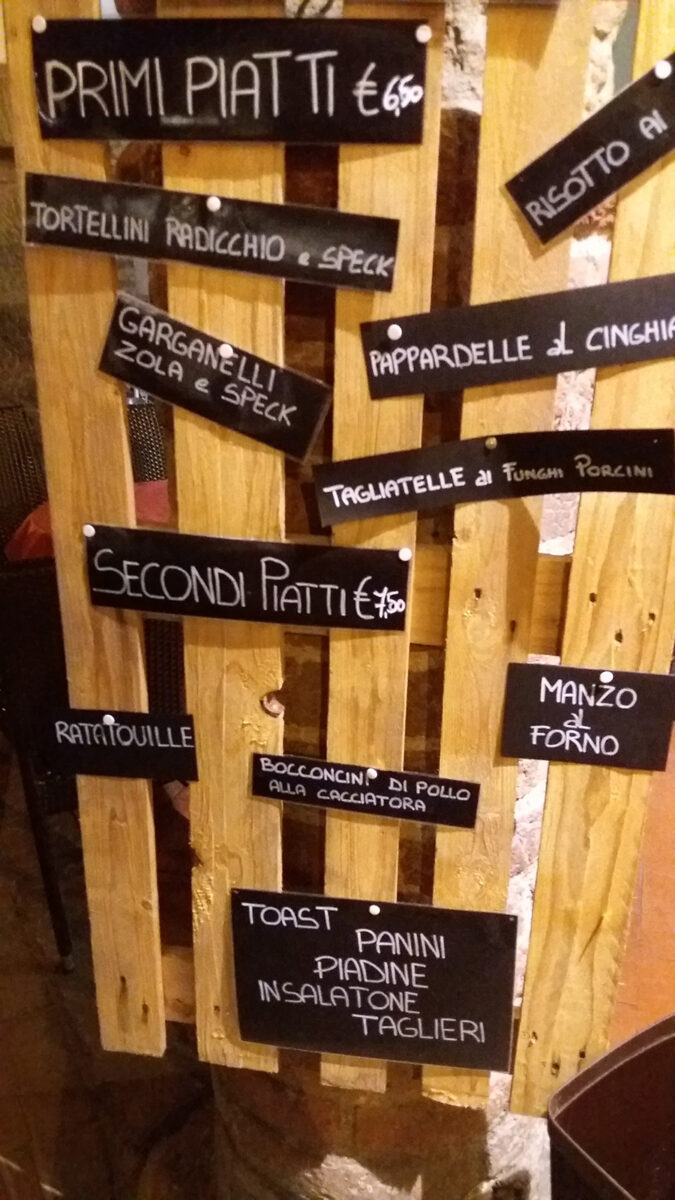 PRIMI PIATTI € 6,50
RISOTTO AI
TORTELLINI RADICCHIO e SPECK
GARGANELLI
ZOLA e SPECK
PAPPARDELLE al CINGHIA
TAGLIATELLE ai FUNGHI PORCINI
SECONDI PIATTI € 7,50
RATATOUILLE
MANZO
al
FORNO
BOCCONCINI DI POLLO
ALLA CACCIATORA
TOAST
PANINI
PIADINE
INSALATONE
TAGLIERI